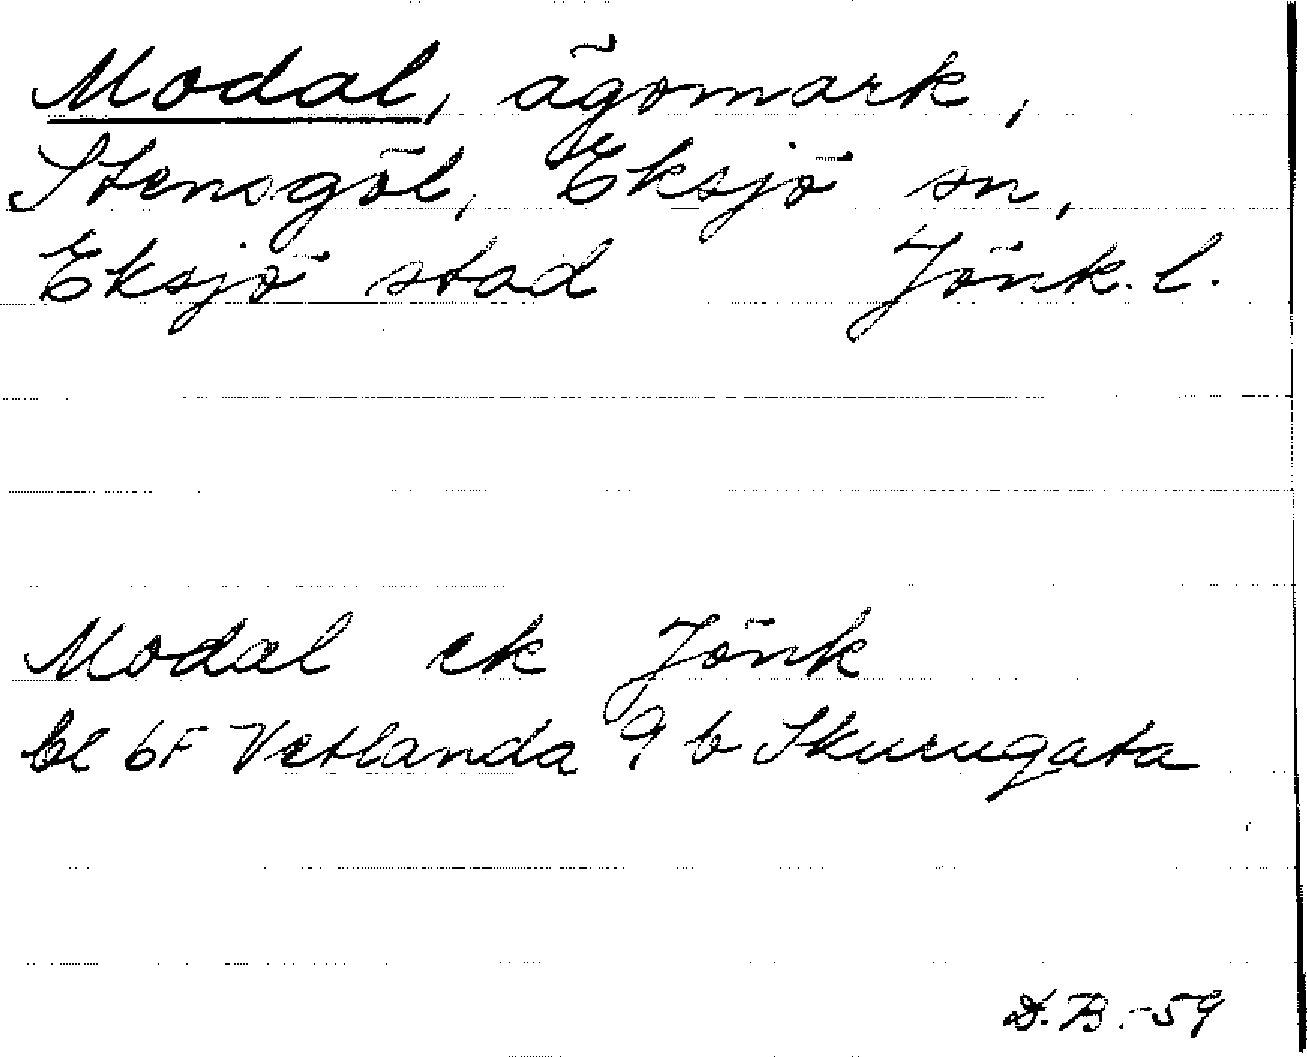 Modal, ägomark,
Stensgöl, Eksjö sn,
Eksjö stad Jönk. l.
Modal ek Jönk
bl 6F Vetlanda 9 b Skurugata
D.B.-59